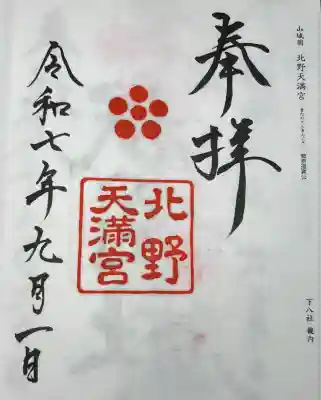 山城国 北野天満宮
下八社 籠内
奉拝
北野
天満宮
令和七年九月一日